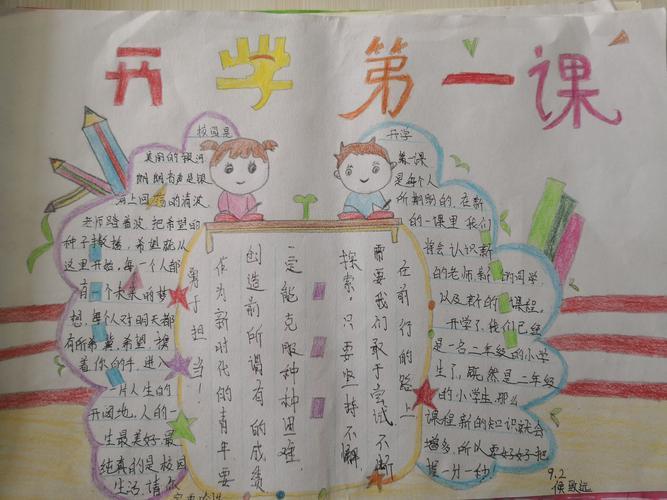 开学第一课
校园是
美丽的银河
朗朗书声是银
河上回荡的清波
老师踏着波,把希望的
种子撒播,希望就从
这里开始,每一个人都
有一个未来的梦
想,每个人对明天都
有所希冀,希望,携
着你的手,进入
一片人生的
开阔地,人的一
生最美好最
纯真的是校园
生活,请你
开学
第一课
是每个人
所期盼的,在新
的一课里,我们
将会认识新
的老师,新的同学,
以及新的课程。
开学了,我们已经
是一名二年级的小学
生了,既然是二年级
的小学生,那么
课程新的知识就会
增多,所以要好好把
握一分一秒!
在前行的路上
需要我们敢于尝试不断
探索,只要坚持不懈
一定能克服种种困难,
创造前所谓有的成绩
作为新时代的青年要
勇于担当!
9.2
侯致远